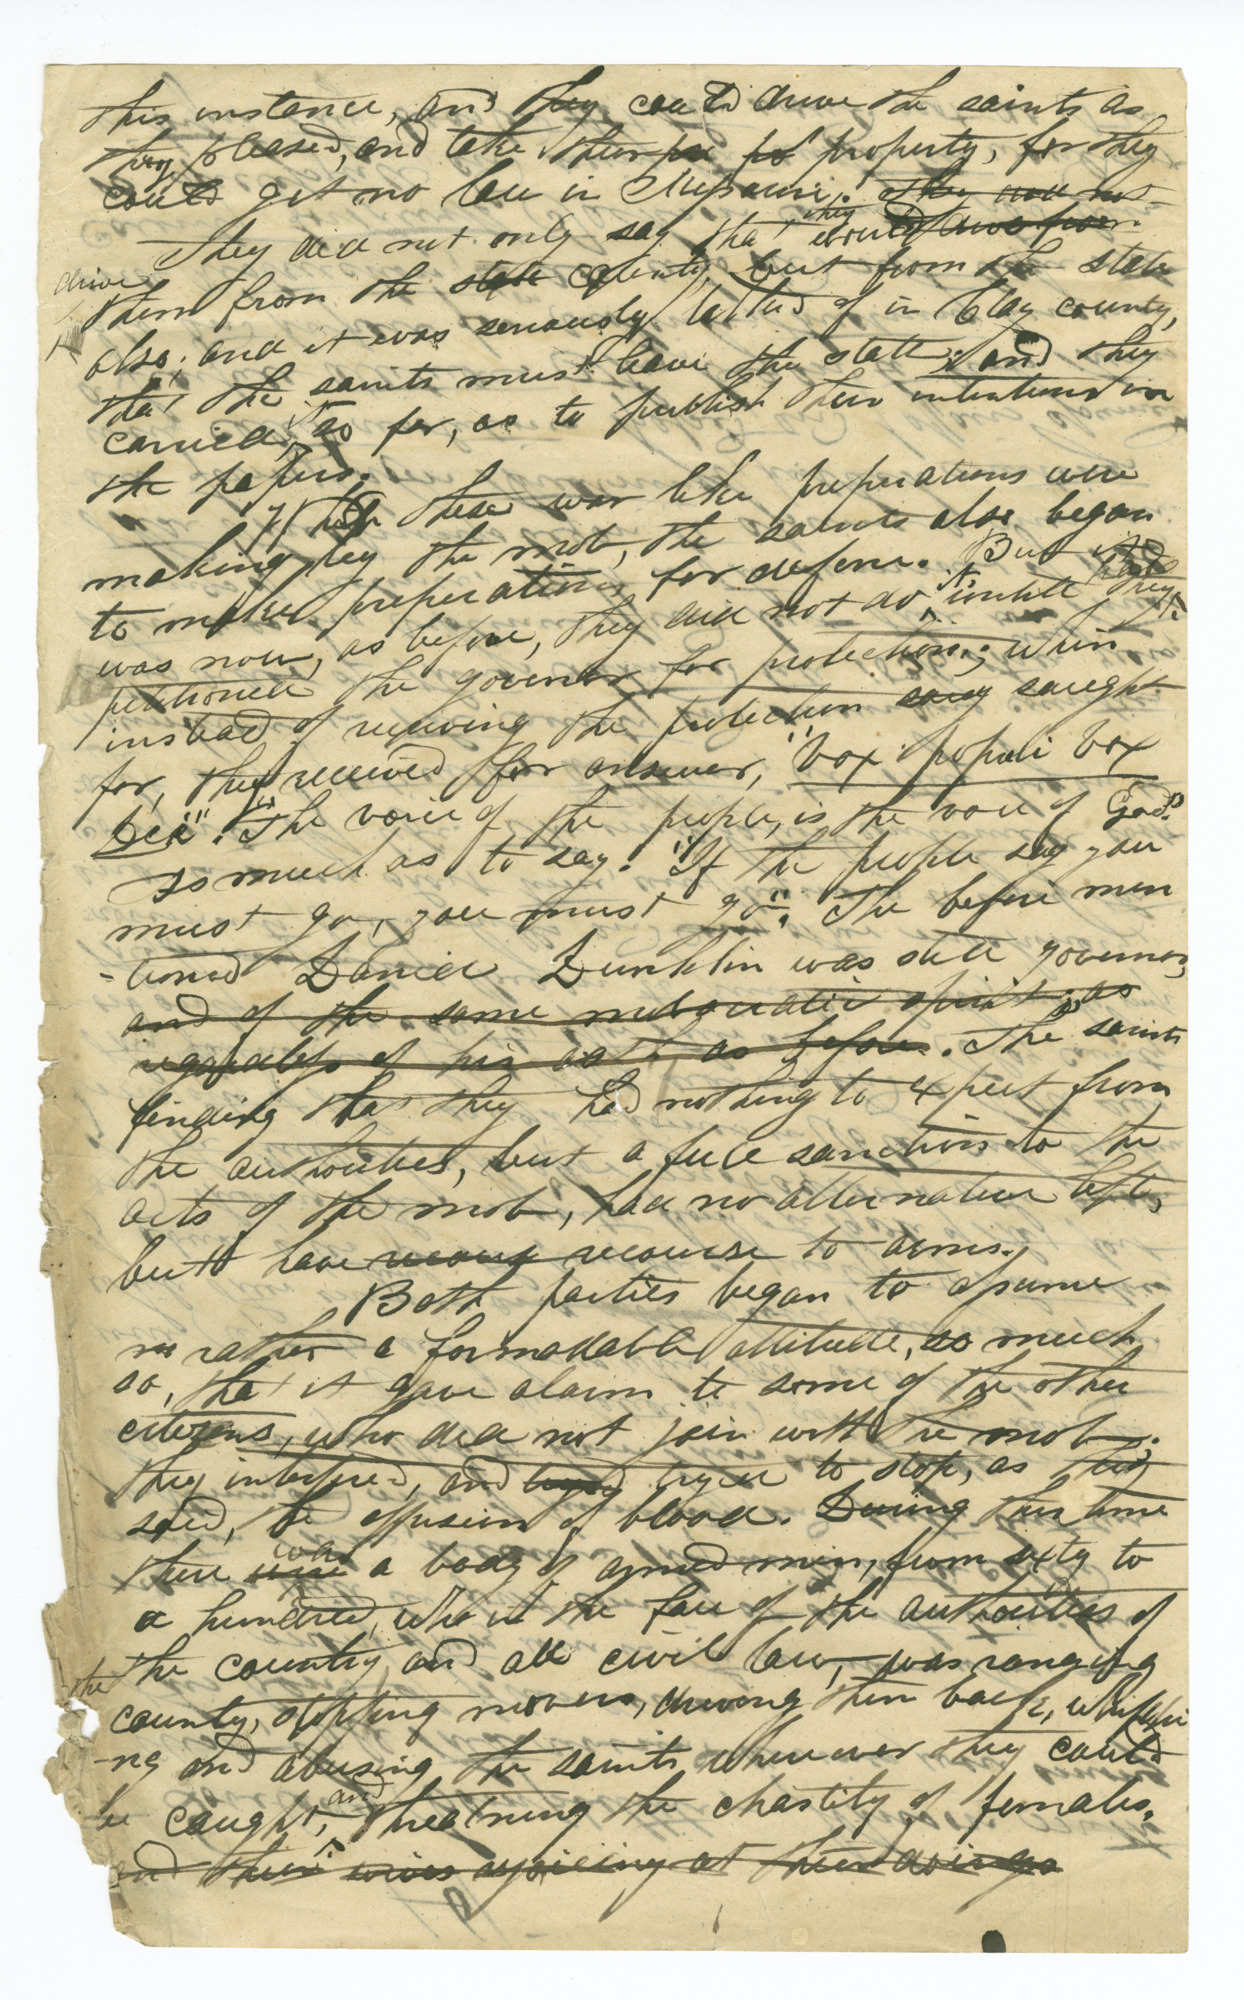 this instance, and they could drive the saints as
they pleased, and take their property, for they
could get no law in Missouri. They did not
They did not only say that they would drive
drive
them from the state county, but from the state
also; and it was seriously talked of in Clay county,
that the saints must leave the state; and they
carried so far, as to publish their intentions in
the papers.
While these war like preparations were
making by the mob, the saints also began
to make preperations for defence. But it
was now, as before, they did not do it, untill they
petitioned the governor for protection; when
instead of receiving the protection saug saught
for, they received for answer, "Vox populi Vox
Dei". "The voice of the people, is the voice of God"
so much as to say. "If the people say you
must go, you must go". The before men
-tioned Daniel Dunklin was still governor,
and of the same mobocratic spirit; as
regardless of his oath, as before. The saints
finding that they had nothing to expect from
the authorities, but a full sanction to the
acts of the mob, had no alternative left,
but to have recours recourse to arms.
Both parties began to assume
rather a formadable attitude, so much
so, that it gave alarm to some of the other
citizens, who did not join with the mob;
they interfered, and tryed tryed to stop, as they
said, the effusion of blood. During this time
was
there were a body of armed men, from sixty to
a hundred, who in the face of the authorities of
the country and all civil law, was ranging
the
county, stopping movers, driving them back, whippi
-ng and abusing the saints wherever they could
be caught, and threatning the chastity of females.
and their wives rejoicing at their doings